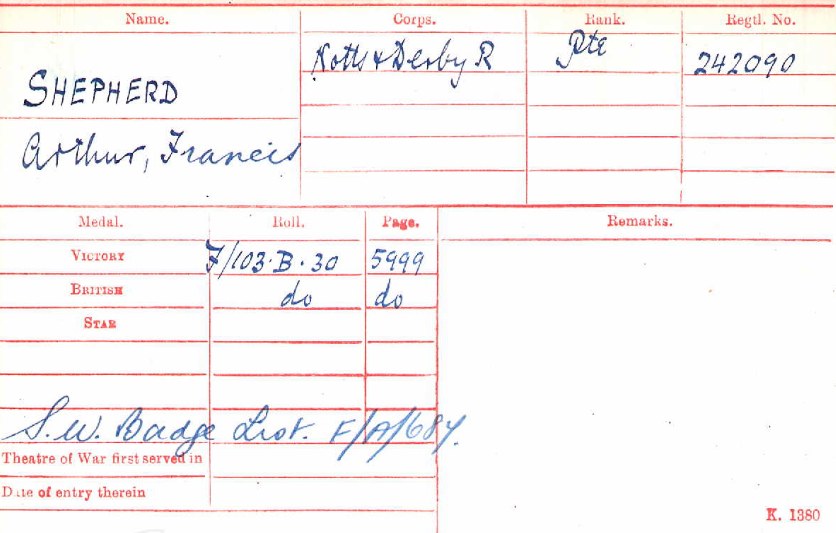 Name. Corps. Rank. Regtl. No.
SHEPHERD Notts & Derby R Pte 242090
Arthur, Francis
Medal. Roll. Page. Remarks.
VICTORY F/103.B.30 5999
BRITISH do do
STAR
S.W. Badge List. F/A/684.
Theatre of War first served in
Date of entry therein
K. 1380